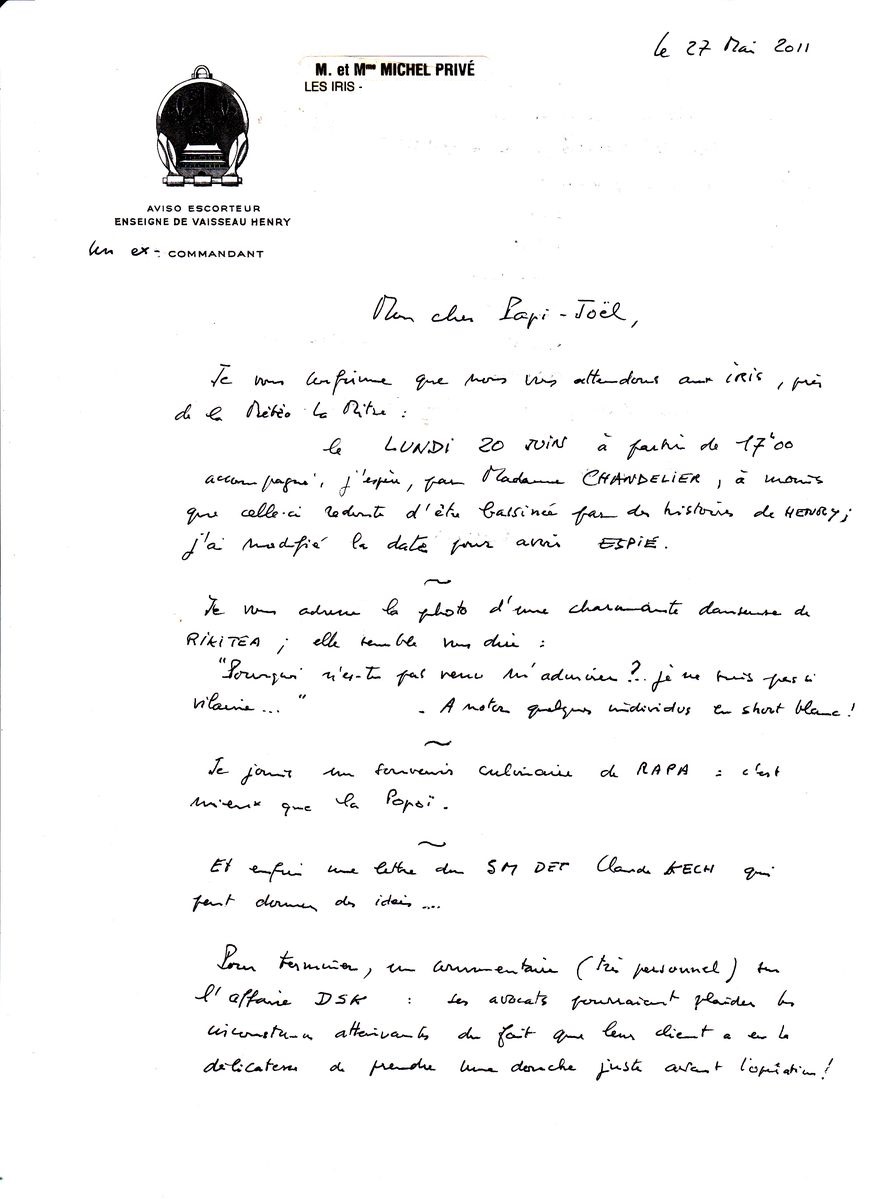 le 27 Mai 2011
M. et Mme MICHEL PRIVÉ
LES IRIS -
AVISO ESCORTEUR
ENSEIGNE DE VAISSEAU HENRY
Un ex - COMMANDANT
Mon cher Papi-Joël,
Je vous confirme que nous vous attendons aux IRIS, près
de la Météo La Mitre :
le LUNDI 20 JUIN à partir de 17h00
accompagné, j'espère, par Madame CHANDELIER, à moins
que celle-ci redoute d'être bassinée par des histoires de HENRY ;
j'ai modifié la date pour avoir ESPIÉ.
~
Je vous adresse la photo d'une charmante danseuse de
RIKITEA ; elle semble vous dire :
"Pourquoi n'es-tu pas venu m'admirer ?.. je ne suis pas si
vilaine... " - A noter quelques individus en short blanc !
~
Je joins un souvenir culinaire de RAPA : c'est
mieux que la Popoï.
~
Et enfin une lettre du SM DET Claude KECH qui
peut donner des idées ....
Pour terminer, un commentaire (très personnel) sur
l'affaire DSK : ses avocats pourraient plaider les
circonstances atténuantes du fait que leur client a eu la
délicatesse de prendre une douche juste avant l'opération !